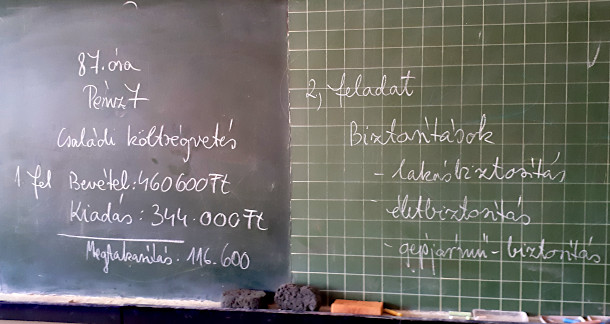 87. óra
Pénz7
Családi költségvetés
1 fel Bevétel: 460600 Ft
Kiadás: 344.000 Ft
Megtakarítás: 116.600
2, feladat
Biztosítások
- lakásbiztosítás
- életbiztosítás
- gépjármű-biztosítás